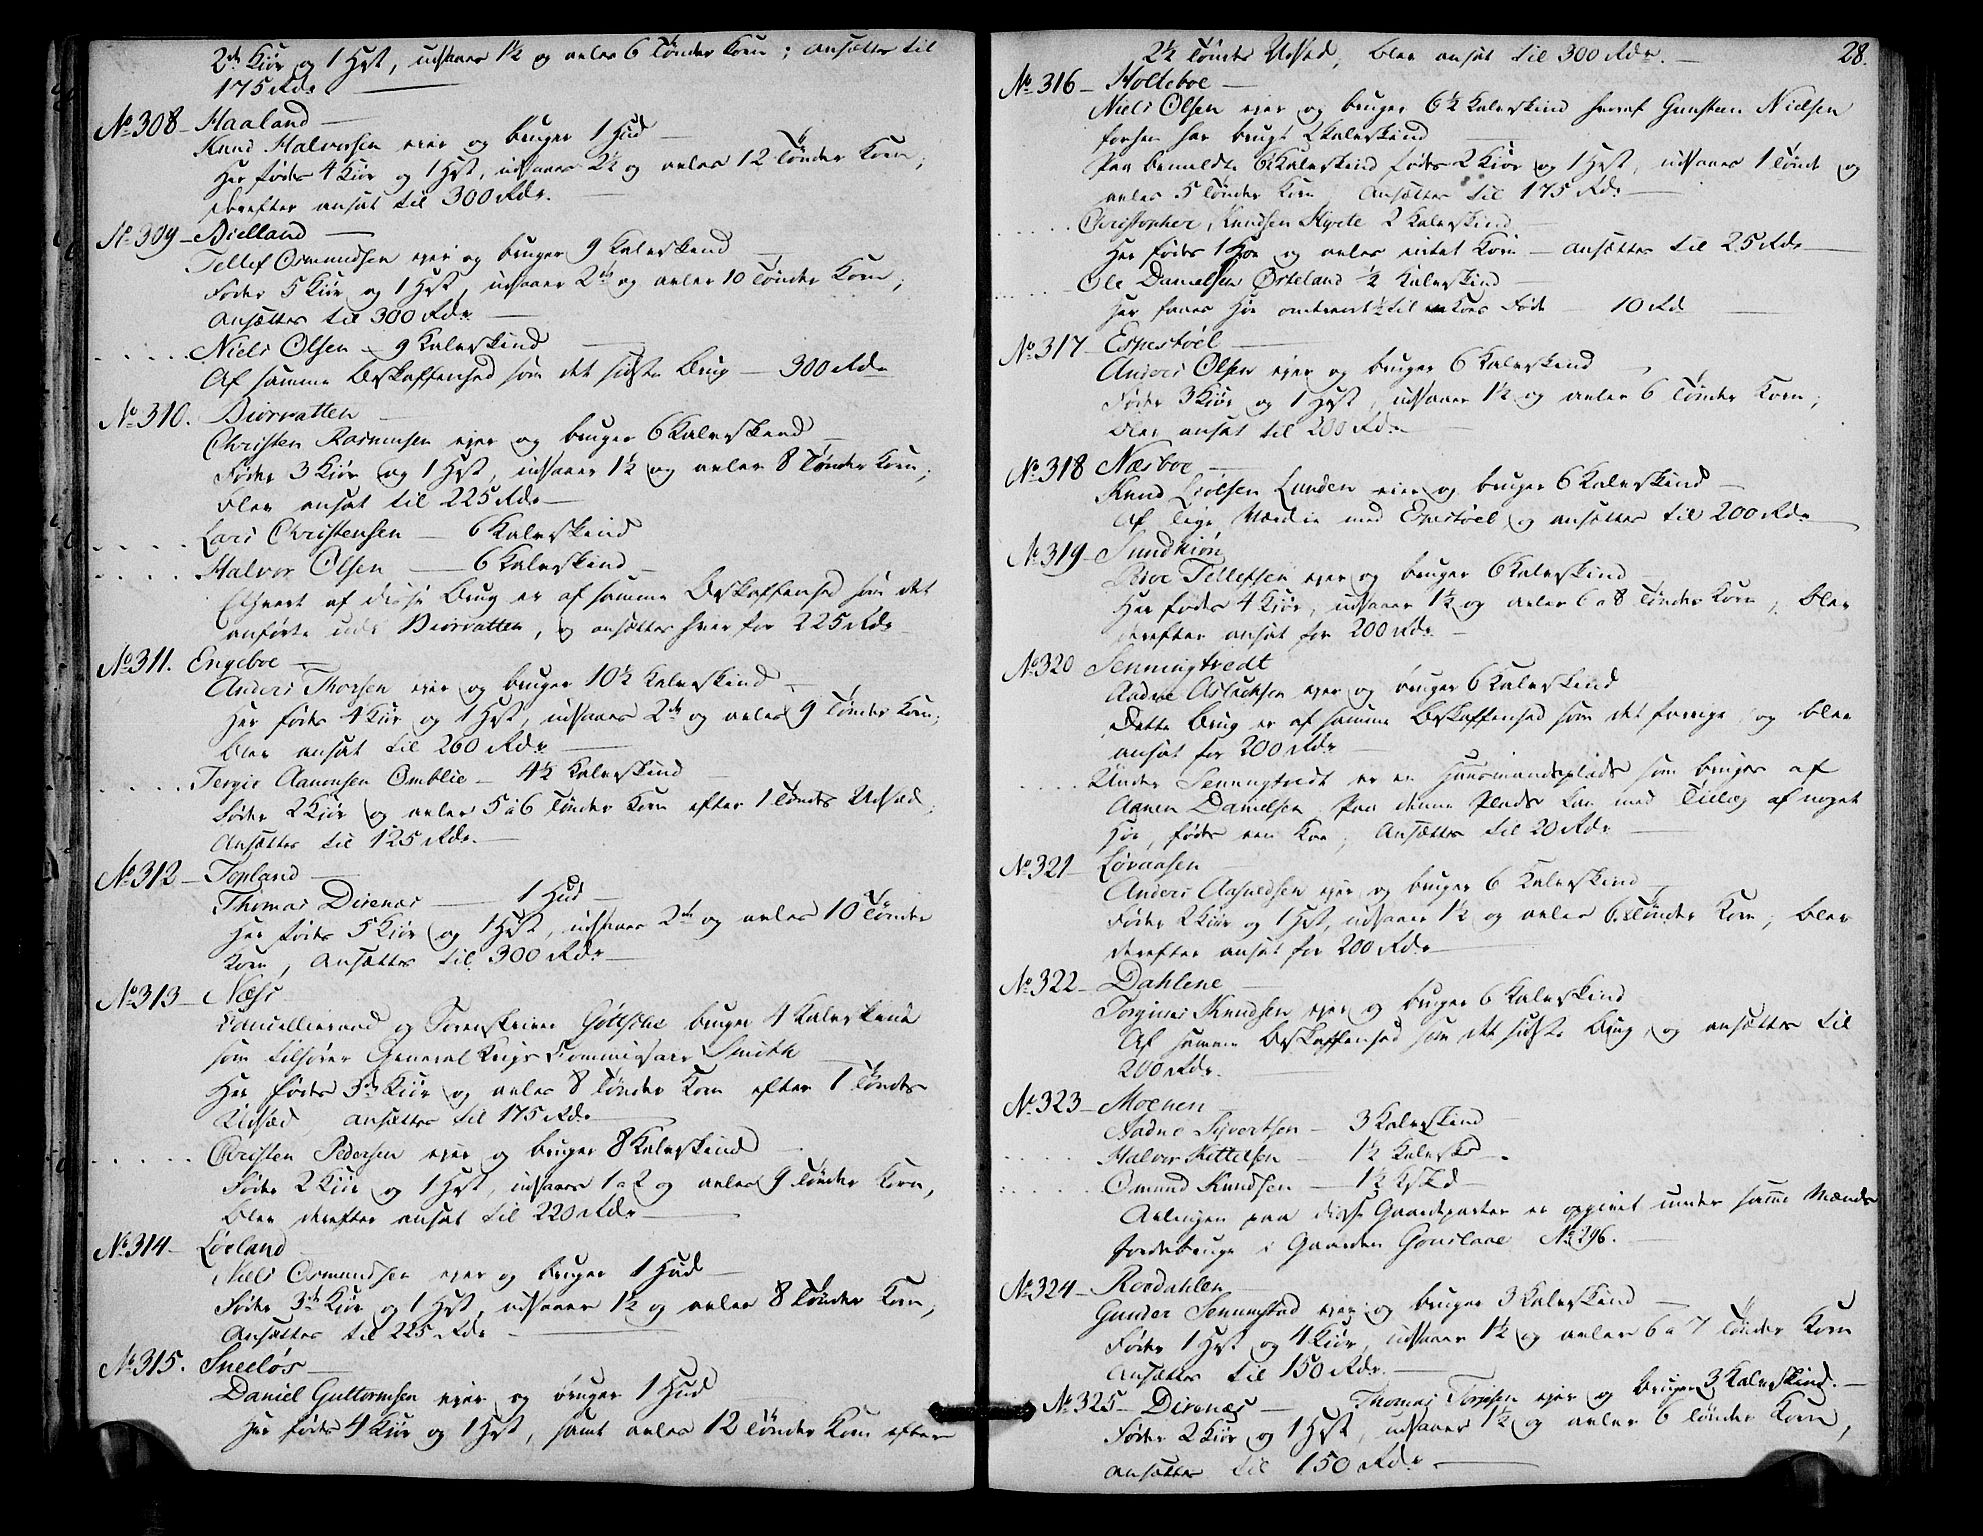 2de Kiör og 1 Hest, udsaaer 1½ og avler 6 Tönder Korn; ansættes til
175 Rdr
No 308 – Haaland –
Knud Halvorsen ejer og bruger 1 Hud –
Her födes 4 Kiör og 1 Hest, udsaaes 2½ og avles 12 Tönder Korn;
derefter ansat til 300 Rdr.
No 309 – Bielland –
Tellef Osmundsen ejer og bruger 9 Kalveskind
Föder 5 Kiör og 1 Hest, udsaaer 2de og avler 10 Tönder Korn;
Ansættes til 300 Rdr –
..... Niels Olsen – 9 Kalveskind
Af samme Beskaffenhed som det sidste Brug – 300 Rdr
No 310. Biorvatten
Christen Rasmusen ejer og bruger 6 Kalveskind
Föder 3 Kiör og 1 Hest, udsaaer 1½ og avler 8 Tönder Korn;
blev ansat til 225 Rdr –
.... Lars Christensen – 6 Kalveskind
.... Halvor Olsen – 6 Kalveskind
Ethvert af disse Brug er af samme Beskaffenhed som det
anförte ude Biorvatten, og ansættes hver for 225 Rdr
No 311. Engeboe –
Anders Thorsen ejer og bruger 10½ Kalveskind –
Her födes 4 Kiör og 1 Hest, udsaaes 2de og avles 9 Tönder Korn;
blev ansat til 260 Rdr –
..... Tergie Aanonsen Omblie – 4½ Kalveskind
Föder 2 Kiör og avler 5 à 6 Tönder Korn efter 1 Töndes Udsæd,
Ansættes til 125 Rdr. –
No 312 – Topland –
Thomas Direnæs – 1 Hud –
Her födes 5 Kiör og 1 Hest, udsaaes 2de og avles 10 Tönder
Korn, Ansættes til 300 Rdr –
No 313 – Næss
Cancellieraad og Sorenskriver Göttsche bruger 4 Kalveskind
som tilhører General Krigs Commissair Smith
Her födes 3de Kiör og avles 8 Tönder Korn efter 1 Töndes
Udsæd, ansættes til 175 Rdr –
..... Christen Pedersen ejer og bruger 8 Kalveskind
Föder 2 Kiör og 1 Hest, udsaaer 1 à 2 og avler 9 Tönder Korn,
blev derefter ansat til 220 Rdr –
No 314 – Löeland
Niels Osmundsen ejer og bruger 1 Hud –
Föder 3de Kiör og 1 Hest, udsaaer 1½ og avler 8 Tönder Korn,
Ansættes til 225 Rdr –
No 315. Sneelös –
Daniel Guttormsen ejer og bruger 1 Hud
Her födes 4 Kiör og 1 Hest, samt avles 12 Tönder Korn efter
28.
2½ Tönders Udsæd, blev ansat til 300 Rdr. –
No 316 – Holteboe –
Niels Olsen ejer og bruger 6½ Kalveskind hvoraf Gunsten Nielsen
forhen har brugt 2 Kalveskind
Paa bemeldte 6½ Kalveskind födes 2 Kiör og 1 Hest, udsaaes 1 Tönde og
avles 5 Tönder Korn Ansættes til 175 Rdr –
..... Christopher Knudsen 2 Kalveskind –
Her födes 1 Koe og avles intet Korn – ansættes til 25 Rdr –
..... Ole Danielsen Østeland ½ Kalveskind –
Her faaes Höe omtrent ½ til en Koes Föde – 10 Rd –
No 317 – Espestöel –
Anders Olsen ejer og bruger 6 Kalveskind
Föder 3 Kiör og 1 Hest, udsaaer 1½ og avler 6 Tönder Korn;
blev ansat til 200 Rdr –
No 318 Næsboe –
Knud Lunden ejer og bruger 6 Kalveskind –
Af lige Værdie med Espestöel og ansættes til 200 Rdr
No 319 – Sundtiön
Tellefsen ejer og bruger 6 Kalveskind
Her födes 4 Kiör, udsaaes 1½ og avles 6 à 8 Tönder Korn, blev
derefter ansat for 200 Rdr. –
No 320 Senningtvedt
Aadne Aslachsen ejer og bruger 6 Kalveskind
Dette Brug er af samme Beskaffenhed som det forrige, og blev
ansat for 200 Rdr –
..... Under Senningtvedt er en Huusmandsplads som bruges af
Aanen Danielsen. Paa denne Plads kan med Tillæg af noget
Höe, födes een Koe; Ansættes til 20 Rdr –
No 321 – Lövaasen
Anders Aasuldsen ejer og bruger 6 Kalveskind
Föder 2 Kiör og 1 Hest, udsaaer 1½ og avler 6 Tönder Korn, blev
derefter ansat for 200 Rdr –
No 322 – Dahlene –
Torgiuls Knudsen ejer og bruger 6 Kalveskind
Af samme Beskaffenhed som det sidste Brug, og ansættes til
200 Rdr.
No 323 – Moenen
Aadne Sivertsen – 3 Kalveskind
..... Halvor Kittelsen – 1½ Kalvesk –
..... Osmund Knudsen – 1½ Kskd –
Avlingen paa disse Gaardeparter er opgivet under samme Mænds
Jordebruge i Gaarden No 296.
No 324 – Rosdahlen
Gunder Senningtved ejer og bruger 3 Kalveskind
Föder 1 Hest og 4 Kiör, udsaaer 1½ og avler 6 à 7 Tönder Korn
Ansættes til 150 Rdr. –
No 325 – Direnæs – Thomas ejer og bruger 3 Kalveskind. –
Föder 2 Kiör og 1 Hest, udsaaer 1½ og avler 6 Tönder Korn,
ansættes til 150 Rdr. –